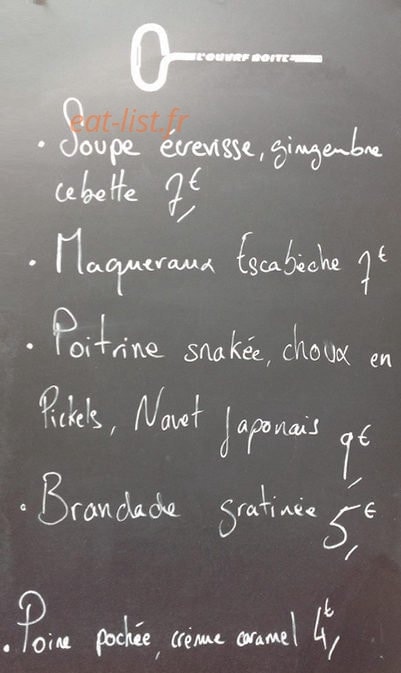 L'OUVRE BOITE
eat-list.fr
• Soupe écrevisse, gingembre
cebette 7€
• Maqueraux Escabèche 7€
• Poitrine snakée, choux en
Pickels, Navet Japonais 9€
• Brandade gratinée 5€
• Poire pochée, crème caramel 4€